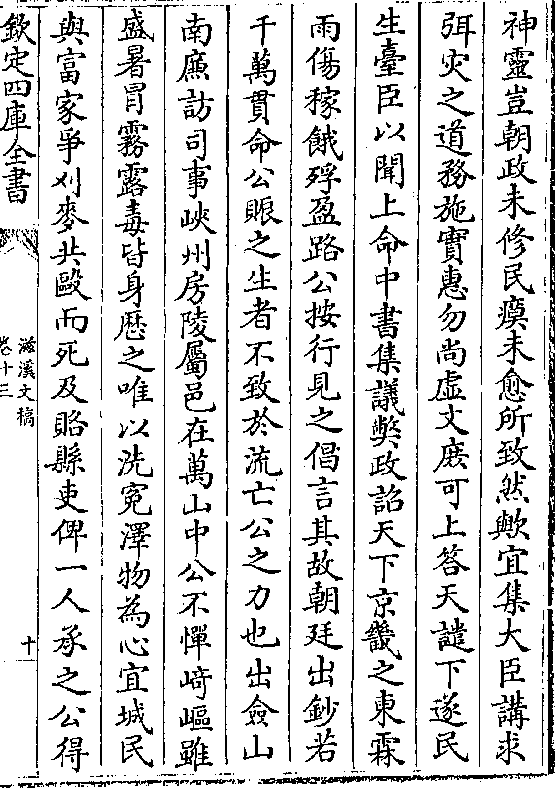 神靈豈朝政未修民瘼未愈所致然歟宜集大臣講求
弭灾之道務施實惠勿尚虛文庶可上答天譴下遂民
生臺臣以聞上命中書集議弊政詔天下京畿之東霖
雨傷稼餓殍盈路公按行見之倡言其故朝廷出鈔若
千萬貫命公賑之生者不致於流亡公之力也出僉山
南廉訪司事峽州房陵屬邑在萬山中公不憚﨑嶇雖
盛暑冒霧露毒皆身歴之唯以洗寃澤物為心宜城民
與富家爭刈麥共毆而死及賂縣吏俾一人承之公得
欽定四庫全書
滋溪文稿
卷十三
十